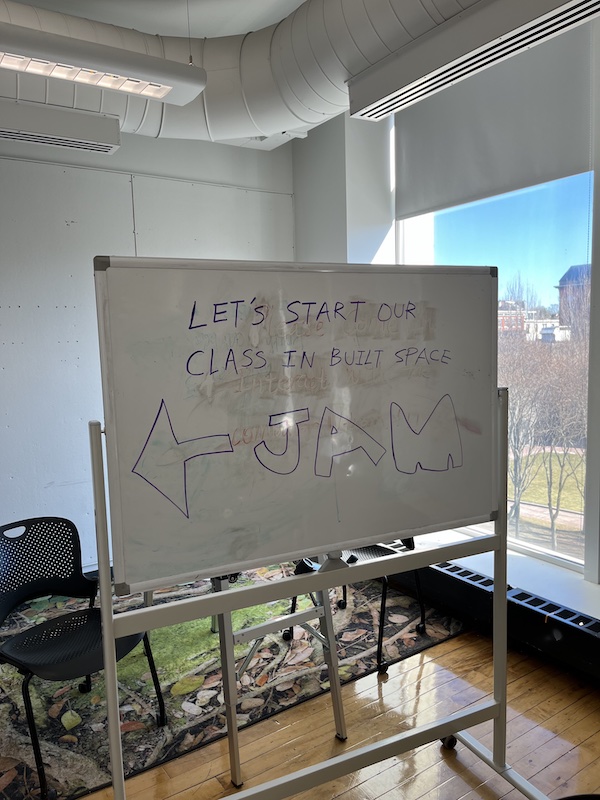 LET'S START OUR
CLASS IN BUILT SPACE
JAM